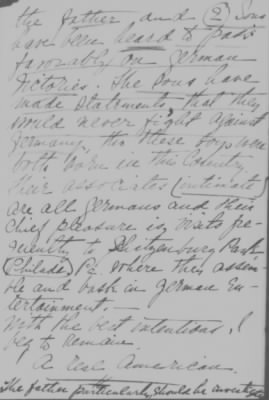 the father and (2) sons
have been heard to pass
favorably on German
Victories. The sons have
made statements, that they
would never fight against
Germany, tho these boys were
both born in this Country.
Their associates (intimate)
are all Germans and their
chief pleasure is, visits fre-
quently to Shitzenburg Park
(Philada) Pa. where they assem-
ble and bask in German En-
tertainment.—
With the best intentions, I
beg to remain.
A real American.
The father particularly, should be investigated